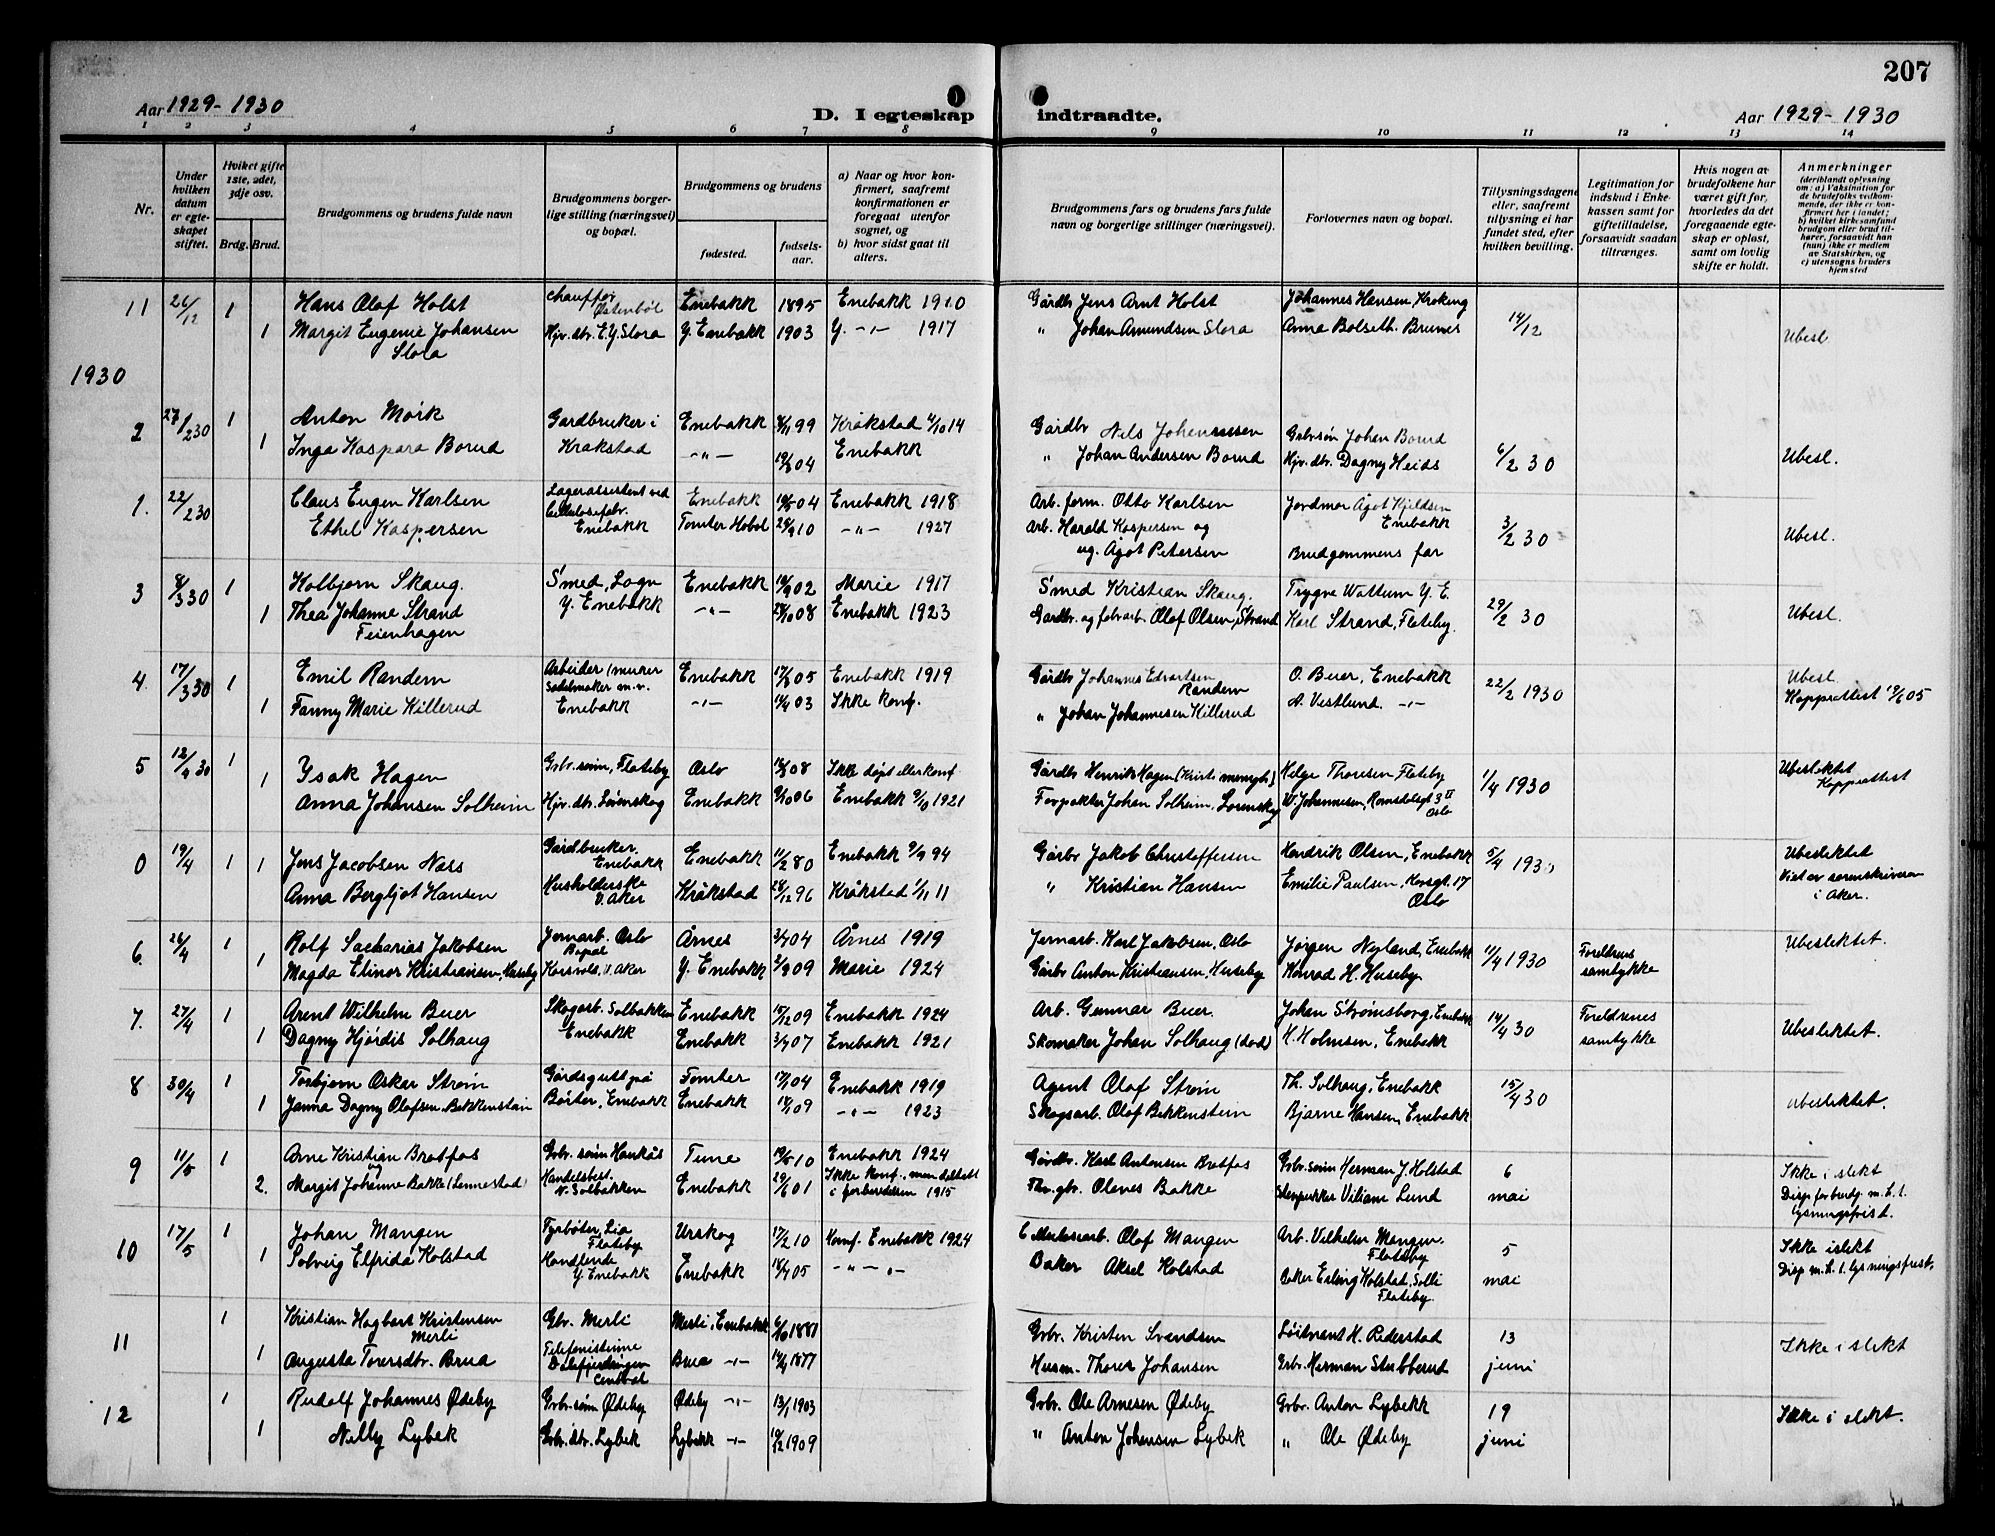 207
Aar 1929-1930
D. I egteskap indtraadte.
Aar 1929-1930
1 2 3 4 5 6 7 8 9 10 11 12 13 14
Nr.
Under hvilken datum er egteskapet stiftet.
Hvilket gifte 1ste, 2det, 3dje osv.
Brdg. Brud.
Brudgommens og brudens fulde navn
Brudgommens borgerlige stilling (næringsvei) og bopæl.
Brudgommens og brudens
fødested.
fødselsaar.
a) Naar og hvor konfirmert, saafremt konfirmationen er foregaat utenfor sognet, og
b) hvor sidst gaat til alters.
Brudgommens fars og brudens fars fulde navn og borgerlige stillinger (næringsvei).
Forlovernes navn og bopæl.
Tillysningsdagene eller, saafremt tillysning ei har fundet sted, efter hvilken bevilling.
Legitimation for indskud i Enkekassen samt for giftetilladelse, forsaavidt saadan tiltrænges.
Hvis nogen av brudefolkene har været gift før, hvorledes da det foregaaende egteskap er opløst, samt om lovlig skifte er holdt.
Anmerkninger
(deriblandt oplysning om: a) Vaksination for de brudefolks vedkommende, der ikke er konfirmert her i landet; b) hvilket kirkesamfund brudgom eller brud tilhører, forsaavidt han (hun) ikke er medlem av Statskirken, og c) utensogns bruders hjemsted
11 26/12 1 Hans Olaf Holst Chauffør Østenböl Enebakk 1895 Enebakk 1910 Gårdbr Jens Arnt Holst Johannes Hansen, Kroking 14/12 Ubesl.
1 Margit Eugenie Johansen Slora Hjv. dtr. E.Y. Slora Y. Enebakk 1903 Y. -"- 1917 " Johan Amundsen Slora Anna Bolseth. Brunes
1930
2 27/2 30 1 Anton Mørk Gardbruker i Enebakk 99 Kråkstad 4/10 14 Gårdbr Nils Johannessen Gsbrsøn Johan Borud 6/2 30 Ubesl.
1 Inga Kaspara Borud Kråkstad -"- 04 Enebakk " Johan Andersen Borud Hjv. dtr. Dagny Heids
1. 22/2 30 Claus Eugen Karlsen Lagerassistent ved Cellulosefabr. Enebakk 04 Enebakk 1918 Arb. form. Otto Karlsen Jordmor Ågot Kjeldsen Enebakk 3/2 30 Ubesl.
Ethel Kaspersen Enebakk Tomter Hobøl 10 -"- 1927 Arb. Harald Kaspersen og ug. Ågot Petersen Brudgommens far
3 8/3 30 1 Kolbjørn Skaug. Smed, Logn Enebakk 02 Marie 1917 Smed Kristian Skaug. Trygve Wattum Y. E. 29/2 30 Ubesl.
1 Thea Johanne Strand Feienhagen Y. Enebakk -"- 08 Enebakk 1923 Gardbr. og fabrarb. Olaf Olsen, Strand Karl Strand, Flateby.
4. 17/3 30 1 Emil Randem Arbeider (murer Sadelmaker m.v. Enebakk 05 Enebakk 1919 Gårdbr Johannes Edvartsen Randem O. Beer, Enebakk 22/2 1930 Ubesl.
1 Fanny Marie Killerud Enebakk -"- 03 Ikke konf. " Johan Johannesen Killerud A. Vestlund. -"- Koppeattest 05
5 12/4 30 1 Isak Hagen Grbr. sønn, Flateby Oslo 08 Ikke døpt eller konf Gårdbr Henrik Hagen (Krist. menigh.) Helge Thoresen Flateby 1/4 1930 Ubeslektet
1 Anna Johansen Solheim Hjv. dtr. Lørenskog Enebakk 06 Enebakk 9/10 1921 Forpakter Johan Solheim, Lørenskog W. Johannesen, Romsdalsgt 3 II Oslo Koppeattest
0 19/4 1 1 Jens Jacobsen Næss Gårdbruker. Enebakk Enebakk 11/2 80 Enebakk 94 Gårbr Jakob Christoffersen Hendrik Olsen, Enebakk 5/4 1930 Ubeslektet
Anna Bergljot Hansen Husholderske V. Aker Kråkstad 28/12 96 Kråkstad 1/11 11 " Kristian Hansen Emilie Paulsen, Korsgt. 17 Oslo Viet av sorenskriveren i Aker.
6. 26/4 1 Rolf Sacharias Jakobsen Jernarb. Oslo Årnes 04 Årnes 1919 Jernarb. Karl Jakobsen, Oslo Jørgen Nyland, Enebakk 11/4 1930 Foreldrenes samtykke Ubeslektet.
1 Magda Elinor Kristiansen, Huseby Bopæl Korsvold, V. Aker Y. Enebakk 09 Marie 1924 Gårbr Anton Kristiansen, Huseby Konrad H. Huseby
7. 27/4 1 Arent Wilhelm Beer Skogarb. Solbakken Enebakk 15/12 09 Enebakk 1924 Arb. Gunnar Beer. Johan Strømsborg, Enebakk 14/4 30 Foreldrenes samtykke Ubeslektet.
1 Dagny Hjørdis Solhaug Enebakk Enebakk 07 Enebakk 1921 Skomaker Johan Solhaug (død) H. Holmsen, Enebakk
8 30/4 1 Torbjørn Oskar Strøm Gårdsgutt på Tomter 04 Enebakk 1919 Agent Olaf Strøm Th. Solhaug, Enebakk 15/4 30 ubeslektet.
1 Janna Dagny Olafsen. Bekkensten Børter, Enebakk Enebakk 09 -"- 1923 Skogsarb. Olaf Bekkenstein Bjarne Hansen, Enebakk
9 11/5 1 Arne Kristian Bratfos Grbr. sønn Haukås Tune 10 Enebakk 1924 Gårdbr. Karl Antonsen Bratfos Grbr. sønn Herman J. Holstad 6 mai Ikke i slekt
2. og Margit Johanne Bakke (Sennestad) Handelsbest. N. Solbakken Enebakk 29/6 01 Ikke konf., men deltatt i forberedelsen 1915 Thv. gbr. Olenes Bakke Stenpukker Viliam Lund Disp forbudg. m. h. t. lysningsfrist.
10 17/5 1 Johan Mangen Fyrbøter, Lia Flateby Urskog 17/2 10 Konf. Enebakk 1924 Cellulosearb. Olaf Mangen Arb. Vilhelm Mangen Flateby 5 mai Ikke i slekt
1 Solveig Elfrida Kolstad Handlende Y. Enebakk Enebakk 05 -"- -"- Baker Aksel Kolstad Baker Erling Kolstad, Solli Flateby. Disp m. h. t. lysningsfrist.
11 1 Kristian Hagbart Kristensen Merli Gbr. Merli Merli, Enebakk 1881 Grbr. Kristen Svendsen Løitnant H. Riderstad 13 juni Ikke i slekt
1 Augusta Toresdtr. Brua Telefonistinne Dalefjerdingen central Brua -"- 1877 Husm. Thores Johansen Grbr. Herman Stubberud
12 1 Rudolf Johannes Ødeby Grbr. sønn Ødeby Ødeby -"- 13/1 1903 Grbr. Ole Arnesen Ødeby Grbr. Anton Lybekk 19 juni Ikke i slekt.
1 Nelly Lybek Grbr. dtr. Lybek Lybekk -"- 1909 " Anton Johansen Lybek " Ole Ødeby